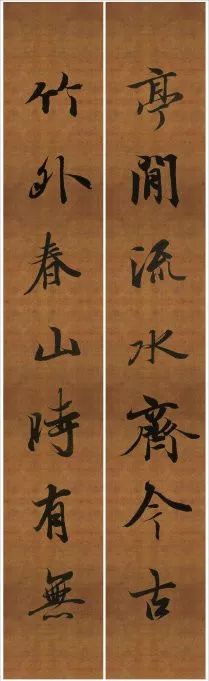 亭閒流水齋今古
竹外春山時有無